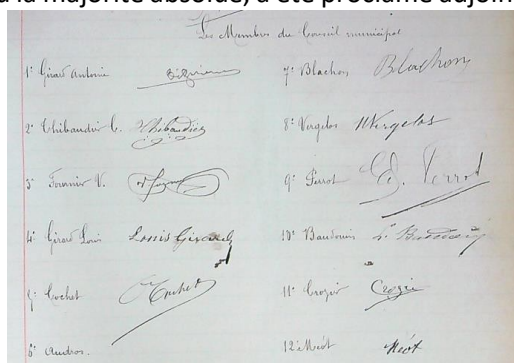 à la majorité absolue, a été proclamé adjoin
Les Membres du Conseil municipal
1° Girard Antoine
2° Thibaudier C. Thibaudier
3° Fournier V.
4° Girard Louis Louis Girard
5° Cochet Cochet
6° Audros.
7° Blachon Blachon
8° Vergelas Vergelas
9° Perrot Perrot
10° Baudouin
11° Crozier Crozier
12° Méot Méot